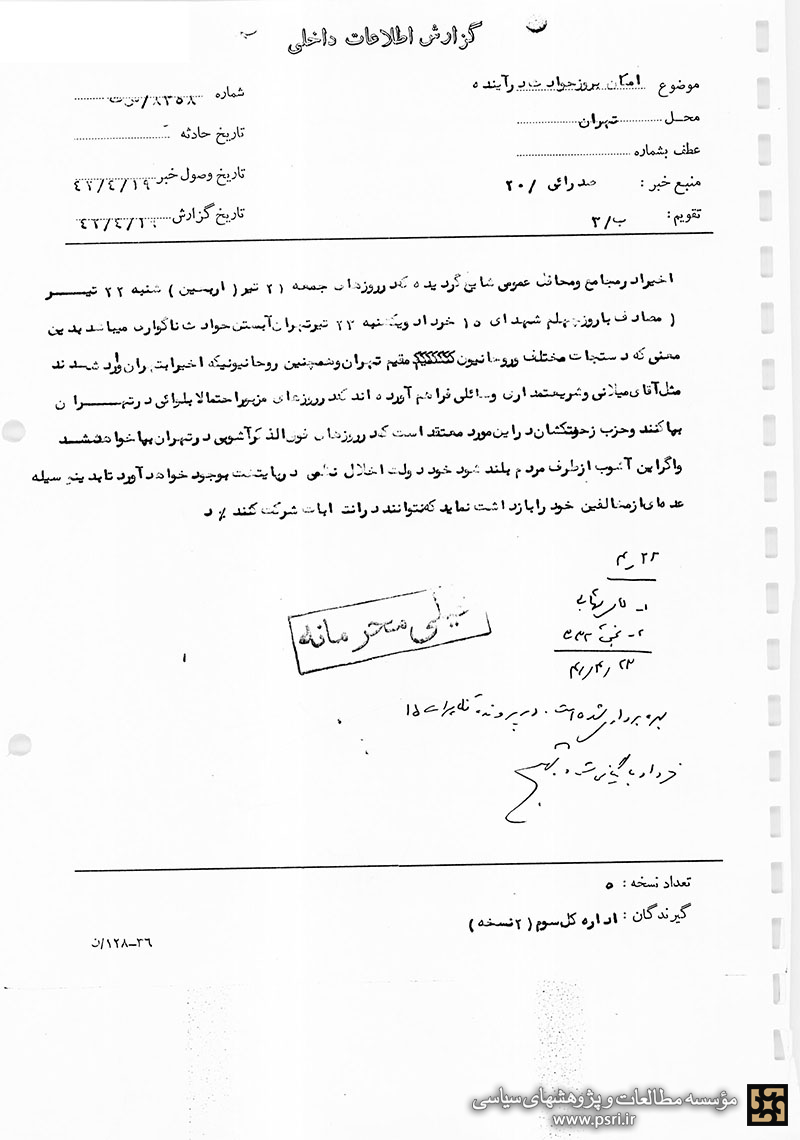 گزارش اطلاعات داخلی
موضوع امکان بروز حوادث در آینده
محل تهران
عطف بشماره
منبع خبر : صدرائی /۲۰
تقویم : ب/۳
شماره ۸۳۵۸/
تاریخ حادثه
تاریخ وصول خبر ۴۲/۴/۱۹
تاریخ گزارش ۴۲/۴/۱۹
اخیرا در مجامع ومحافل عمومی شایع گردیده که در روزهای جمعه ۲۱ تیر ( اربعین ) شنبه ۲۲ تیر
( مصادف با روز چهلم شهدای ۱۵ خرداد ویکشنبه ۲۳ تیر تهران آبستن حوادث ناگواری میباشد بدین
معنی که دستجات مختلف وروحانیون مقیم تهران وهمچنین روحانیونیکه اخیرا بتهران وارد شده اند
مثل آقای میلانی وشریعتمداری وسائلی فراهم آورده اند که در روزهای مزبور احتمالا بلوائی در تهران
بپا کنند وحزب زحمتکشان در این مورد معتقد است که در روزهای فوق الذکر آشوبی در تهران بپا خواهد شد
واگر این آشوب از طرف مردم بلند نشود خود دولت اخلال نظمی در پایتخت بوجود خواهد آورد تا بدینوسیله
عده ای از مخالفین خود را بازداشت نماید که نتوانند در انتخابات شرکت کنند /. د
۲۳ ر ۴
۱-
۲-
۲۳ /۴/ ۴۲
خیلی محرمانه
بهره برداری شده است . در پرونده تظاهرات ۱۵
خرداد بایگانی شود
تعداد نسخه : ۵
گیرندگان : اداره کل سوم ( ۲ نسخه )
۳۶–۱۲۸/ن
مؤسسه مطالعات و پژوهشهای سیاسی
www.psri.ir